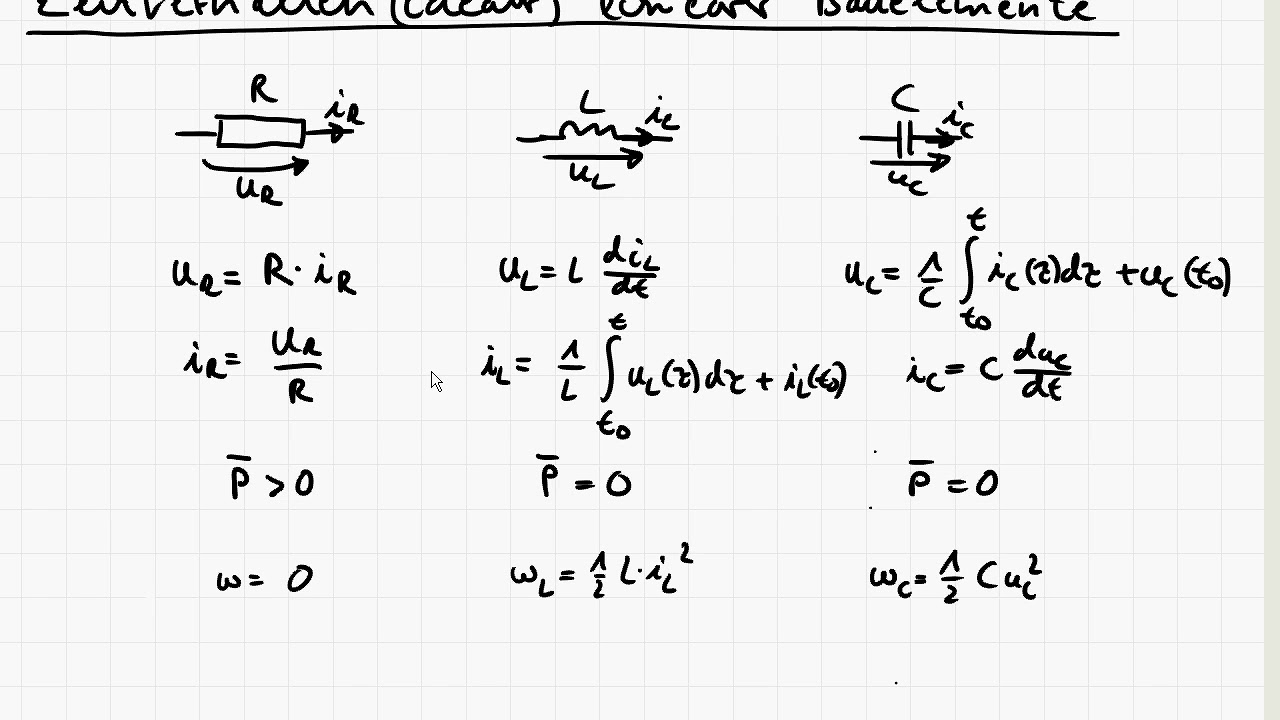 Zeitverhalten (idealer) linearer Bauelemente
R L C
i_R i_L i_C
u_R u_L u_C
u_R = R · i_R u_L = L di_L/dt u_C = 1/C ∫_{t_0}^{t} i_C(τ)dτ + u_C(t_0)
i_R = u_R/R i_L = 1/L ∫_{t_0}^{t} u_L(τ)dτ + i_L(t_0) i_C = C du_C/dt
P̅ > 0 P̅ = 0 P̅ = 0
w = 0 w_L = 1/2 L · i_L² w_C = 1/2 C u_C²